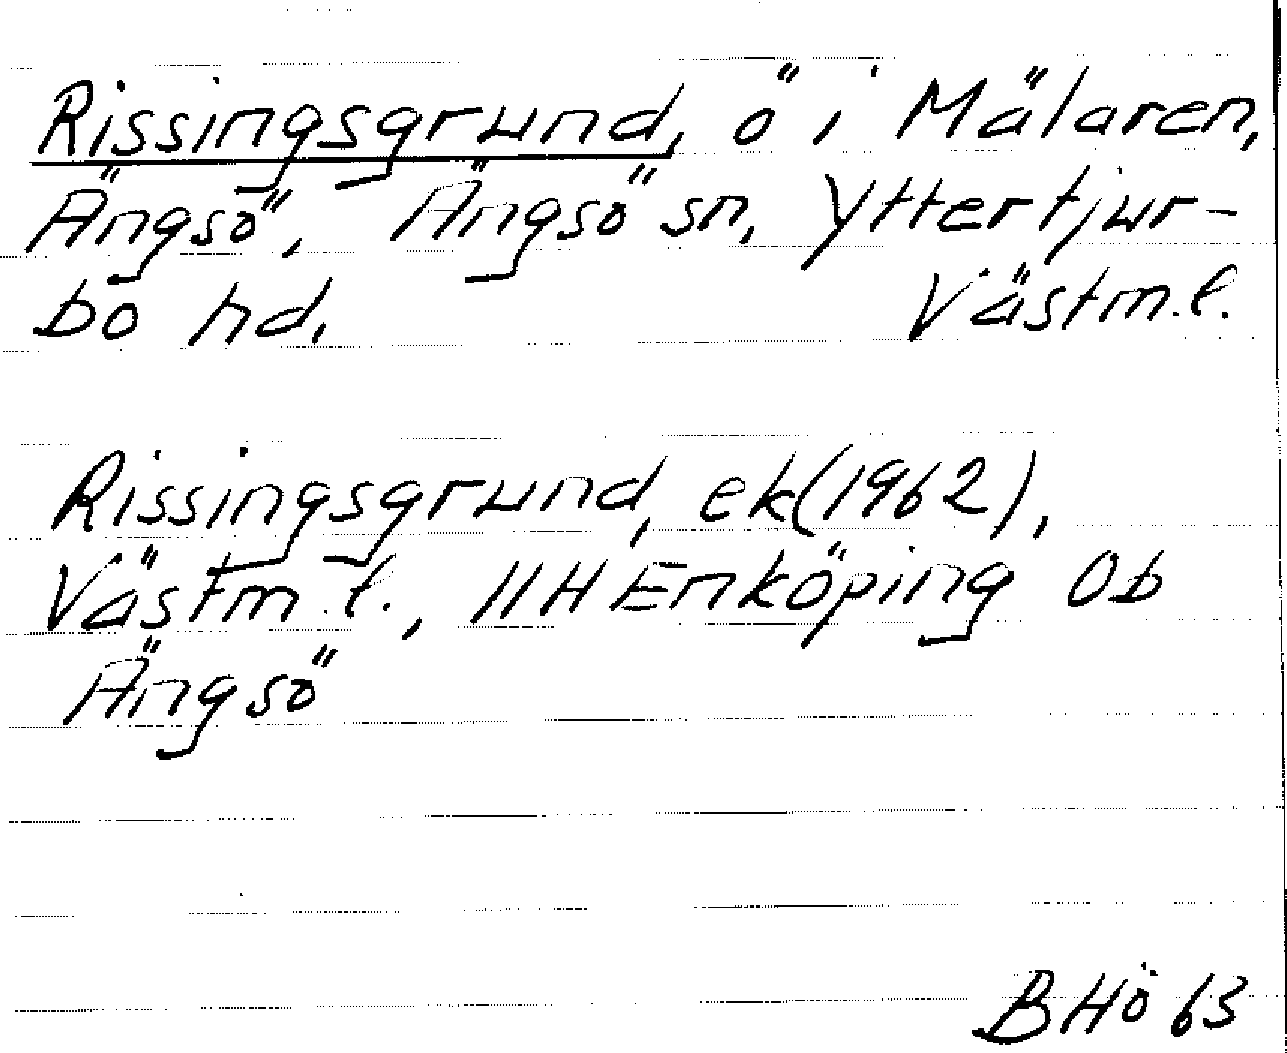 Rissingsgrund, ö i Mälaren,
Ängsö, Ängsö sn, Yttertjur-
bo hd. Västm.l.
Rissingsgrund, ek(1962),
Västm.l., 11H Enköping 0b
Ängsö
BHö 63